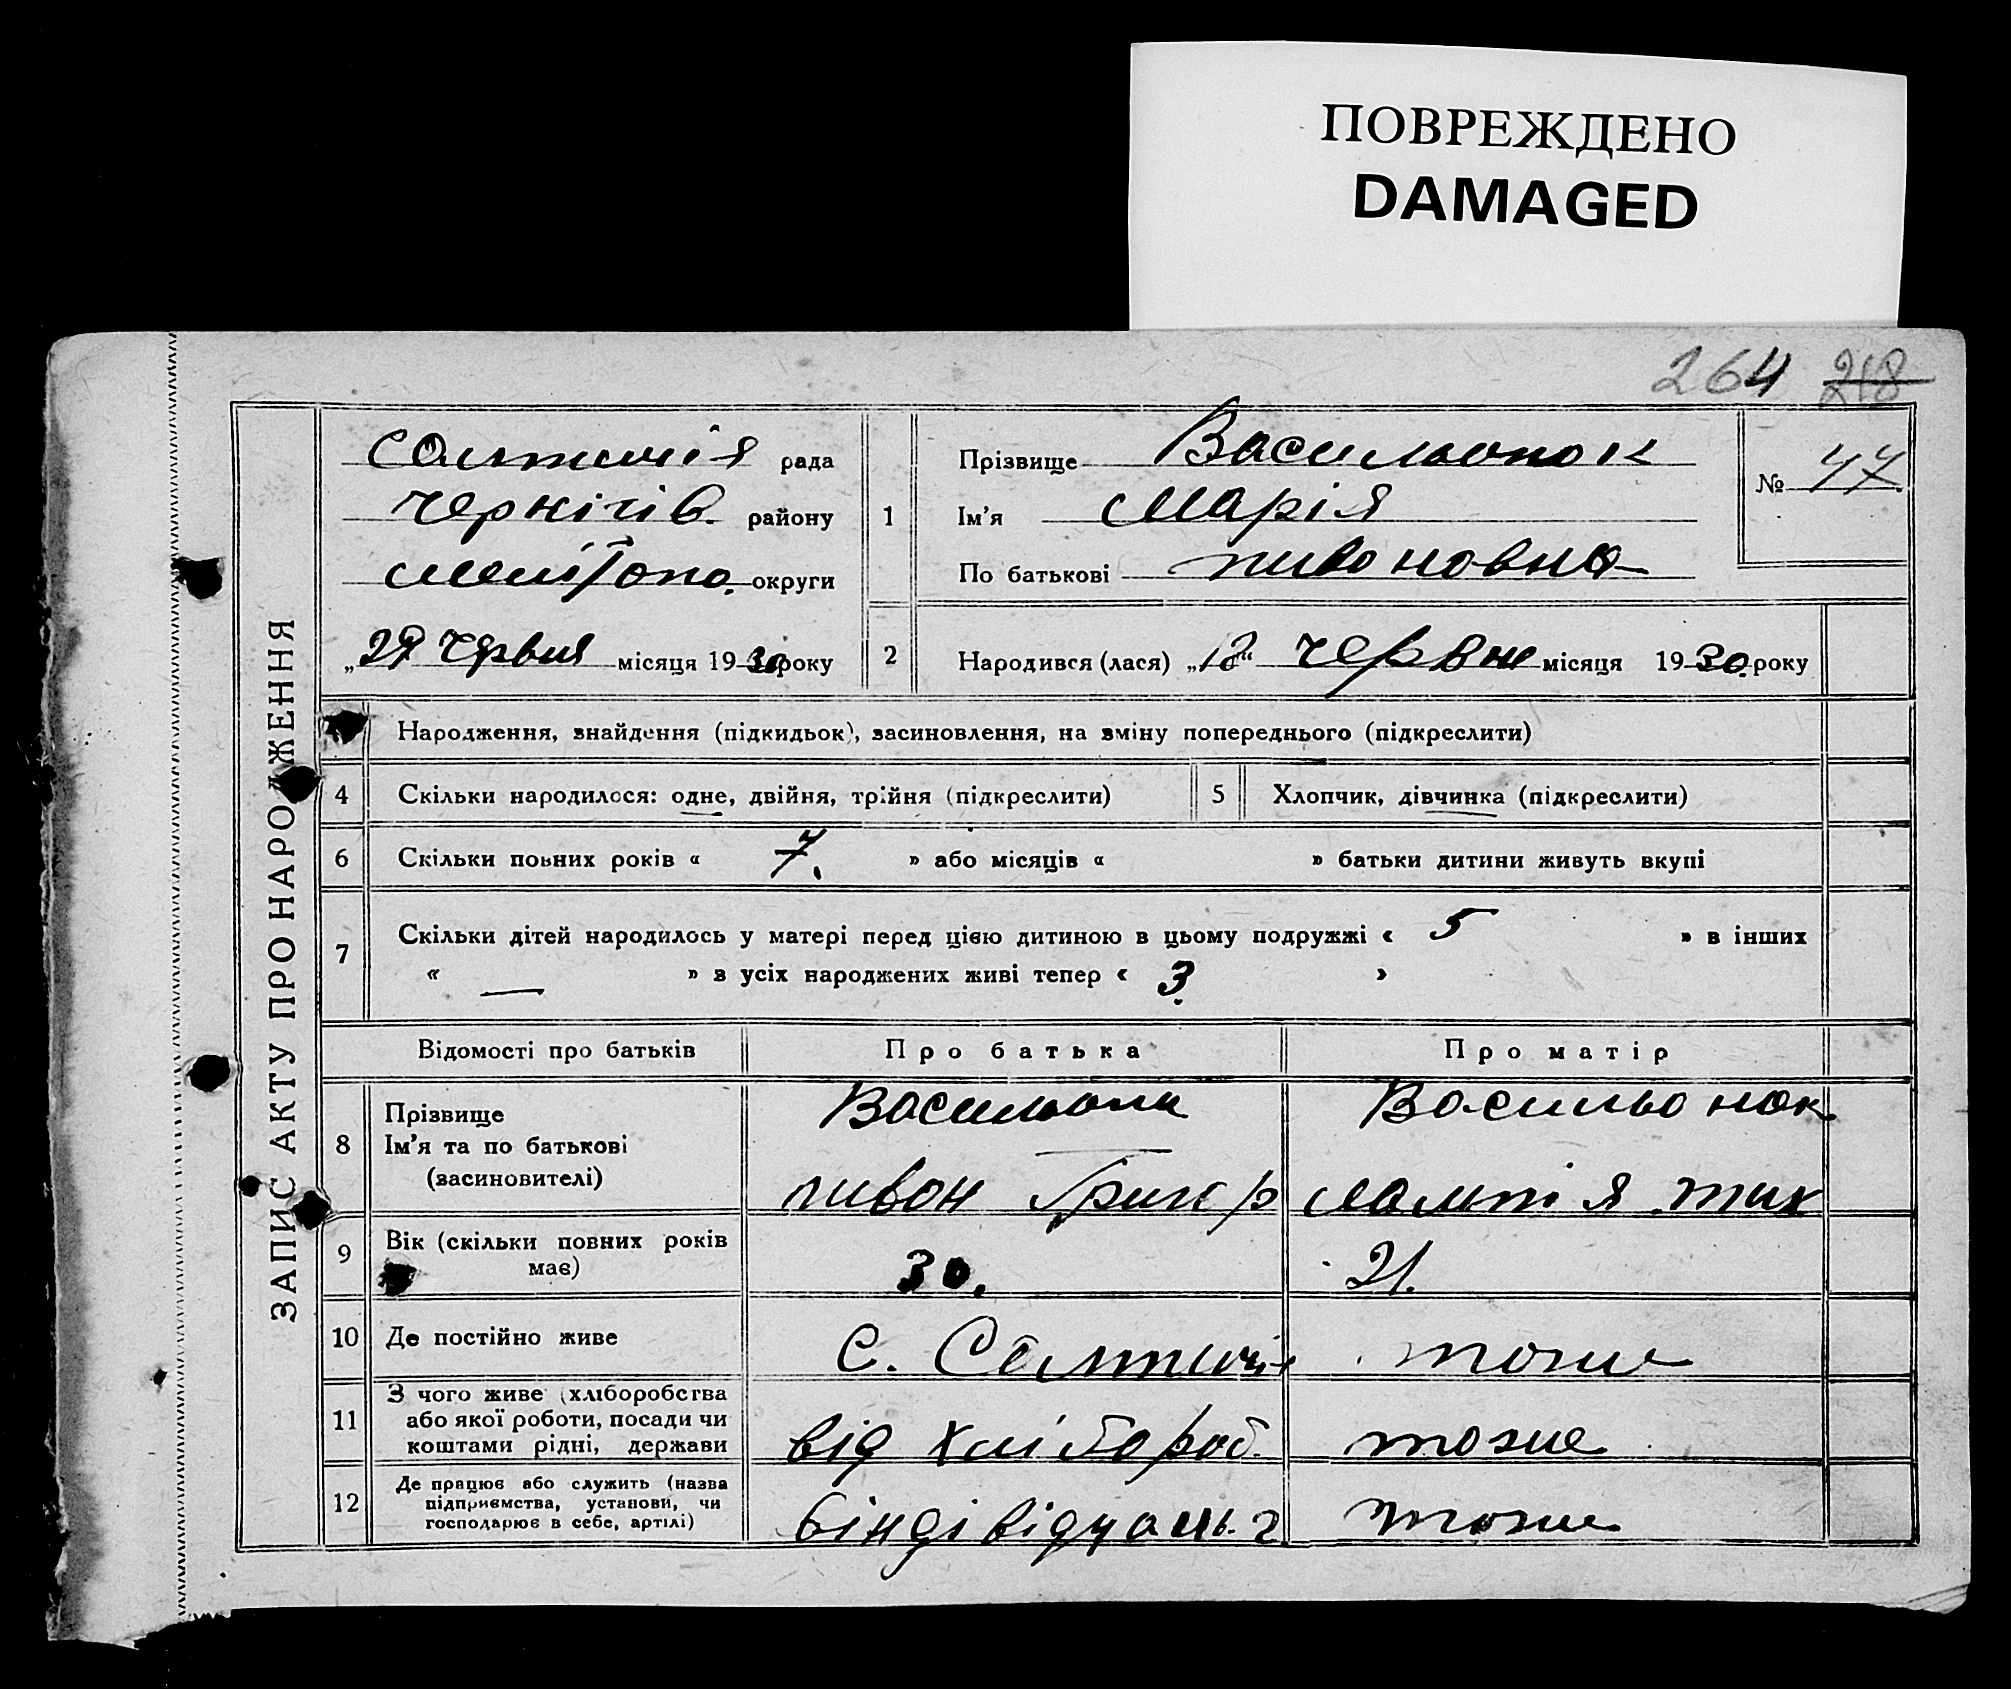 ПОВРЕЖДЕНО
DAMAGED
264 218
ЗАПИС АКТУ ПРО НАРОДЖЕННЯ
Салтичія рада
Чернігів. району
Меліտопо. округи
„29 червня місяця 1930 року
1
Прізвище Васильонок
Ім'я Марія
По батькові пивоновна
№ 47
2
Народився (лася) „12“ червня місяця 1930. року
Народження, знайдення (підкидьок), засиновлення, на зміну попереднього (підкреслити)
4 Скільки народилося: одне, двійня, трійня (підкреслити)
5 Хлопчик, дівчинка (підкреслити)
6 Скільки повних років « 7. » або місяців « » батьки дитини живуть вкупі
7 Скільки дітей народилось у матері перед цією дитиною в цьому подружжі « 5 » в інших
« — » з усіх народжених живі тепер « 3. »
Відомості про батьків
Про батька
Про матір
8 Прізвище
Ім'я та по батькові
(засиновителі)
пивон Григор
Васильонок
тих
9 Вік (скільки повних років
має)
30.
21.
10 Де постійно живе
С. Салтичія
тоже
11 З чого живе (хліборобства
або якої роботи, посади чи
коштами рідні, держави
від хлібороб.
тоже
12 Де працює або служить (назва
підприємства, установи, чи
господарює в себе, артілі)
тоже